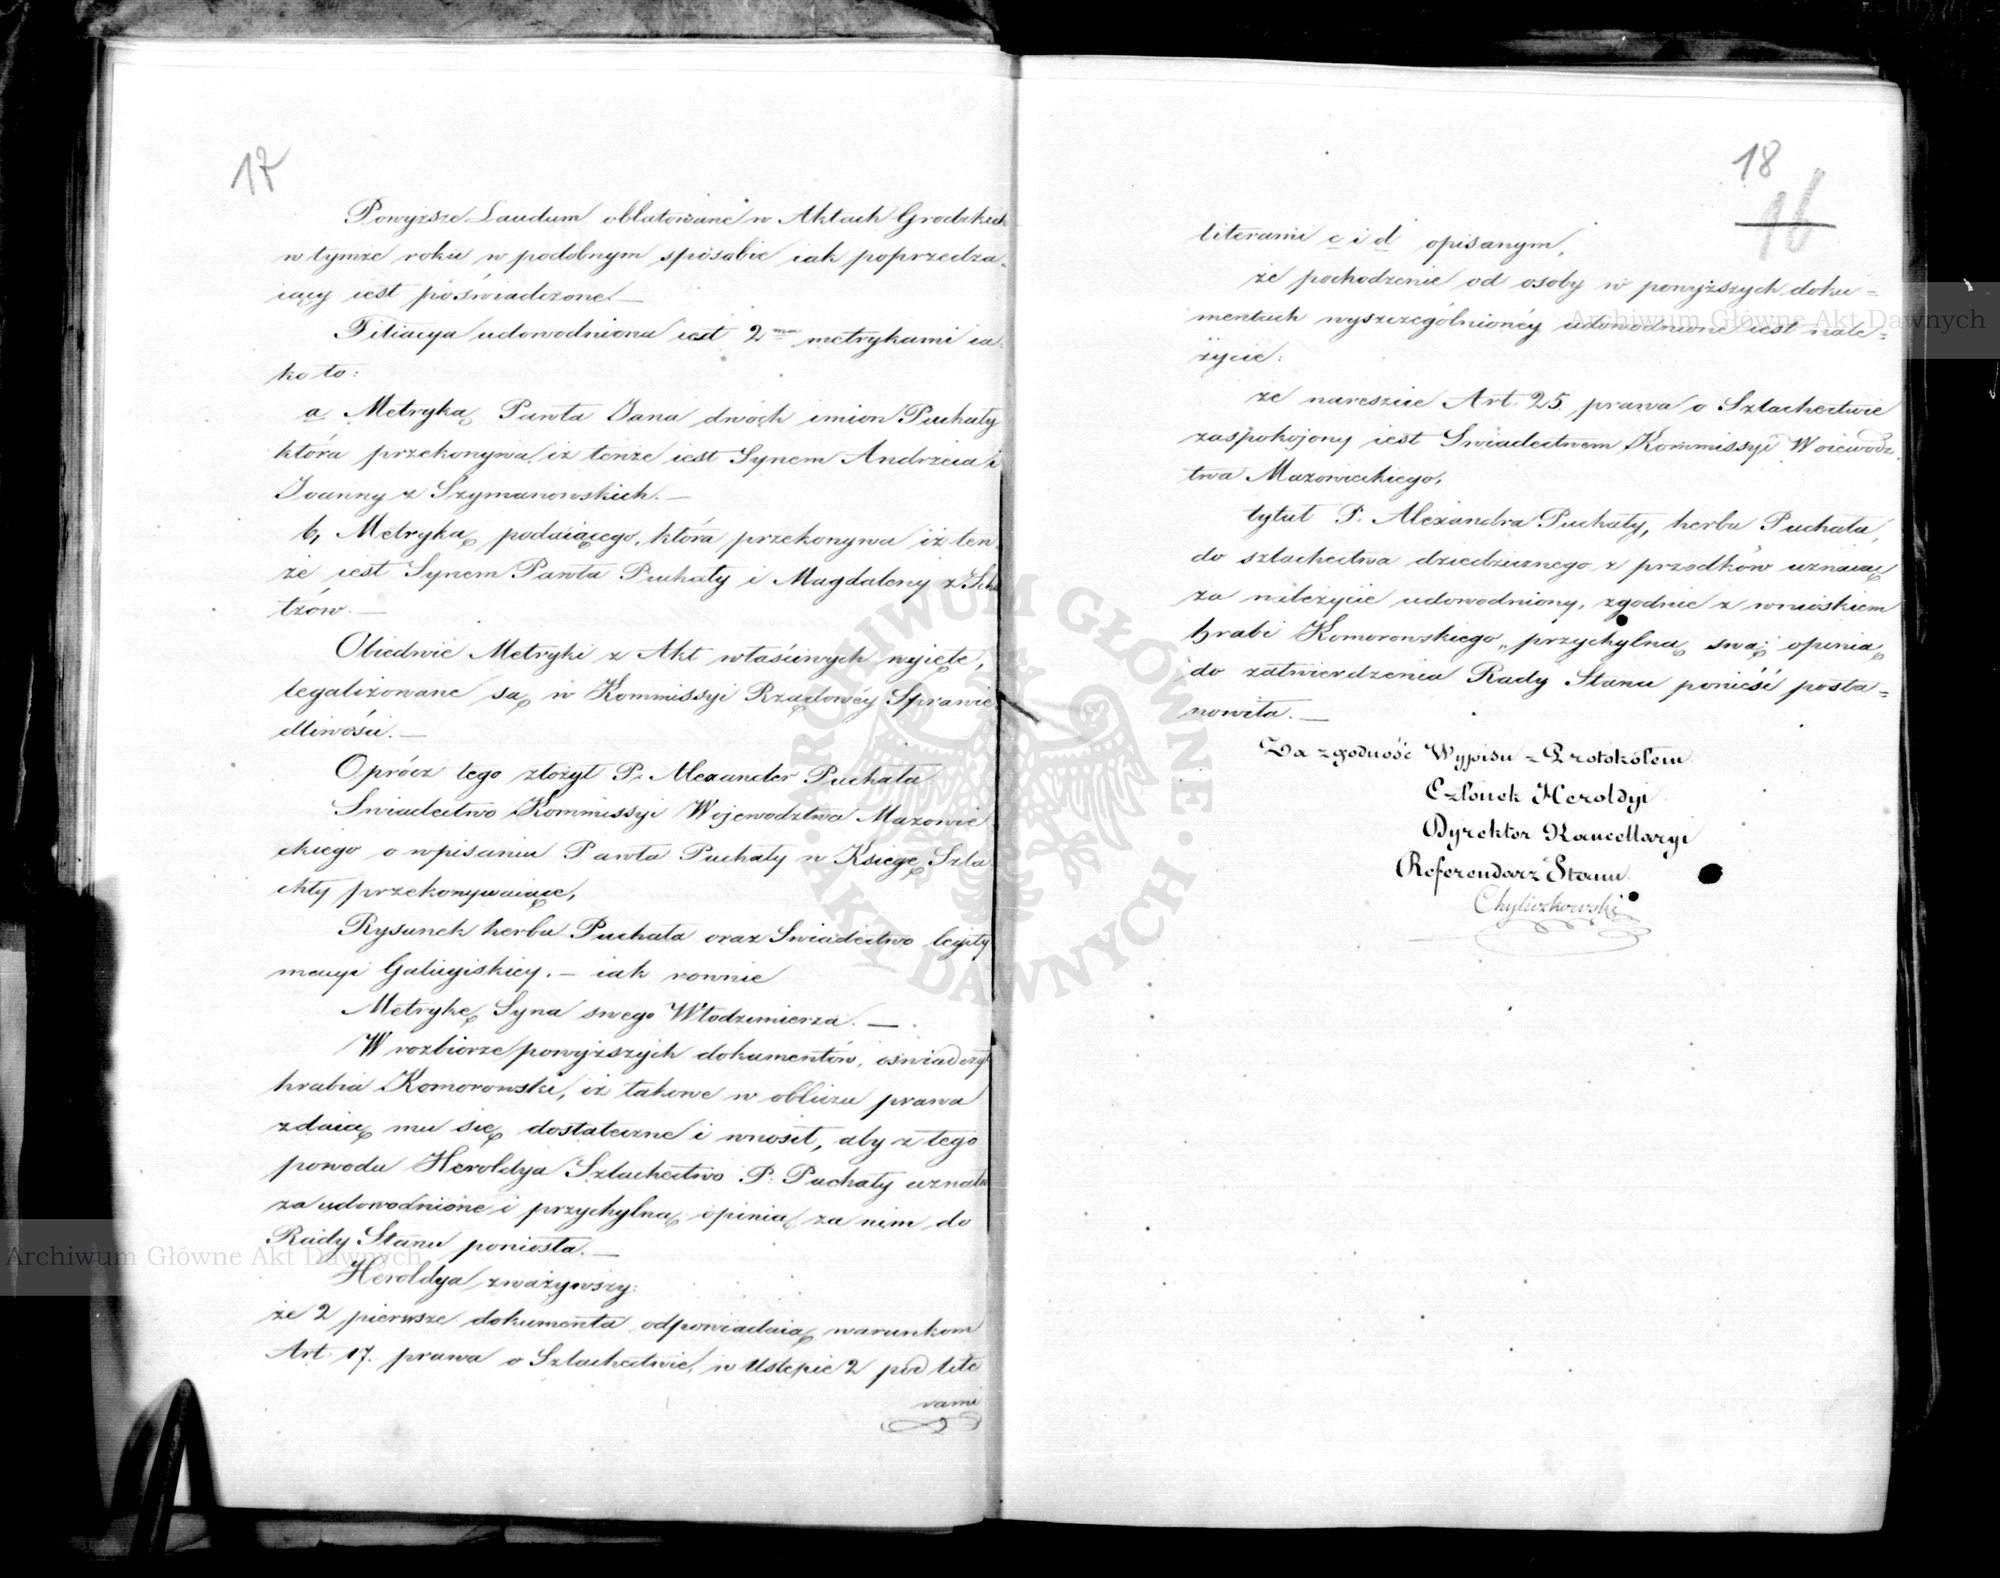 17
Powyższe Laudum oblatowane w Aktach Grodzkich
w tymże roku w podobnym sposobie iak poprzedza-
iący iest poświadczone. —
Filiacya udowodniona iest 2ma metrykami ia-
ko to:
a Metryką Pawła Jana dwóch imion Puchały
która przekonywa, iż tenże iest Synem Andrzeia i
Joanny z Szymanowskich. —
b, Metryką podaiącego, która przekonywa iż ten-
że iest Synem Pawła Puchały i Magdaleny z
tzów. —
Obiedwie Metryki z Akt właściwych wyięte,
legalizowane są w Kommissyi Rządowéy Sprawie
dliwości. —
Oprócz tego złożył P. Alexander Puchała
Swiadectwo Kommissyi Województwa Mazowie
ckiego o wpisaniu Pawła Puchały w Księgę Szla
chty przekonywaiące,
Rysunek herbu Puchała oraz Swiadectwo legity
macyi Galicyiskiey. — iak rownie
Metrykę Syna swego Włodzimierza. —
W rozbiorze powyższych dokumentów, oświadczył
hrabia Komorowski, iż takowe w obliczu prawa
zdaią mu się dostateczne i wnosił, aby z tego
powodu Heroldya Szlachectwo P. Puchały uznała
za udowodnione i przychylną opinią za nim do
Rady Stanu poniosła. —
Heroldya zważywszy:
że 2 pierwsze dokumenta odpowiadaią warunkom
Art. 17. prawa o Szlachectwie, w Ustępie 2 pod lite
rami
18
16
literami c i d opisanym,
że pochodzenie od osoby w powyższych doku=
mentach wyszczególnionéy udowodnione iest nale=
życie:
że nareszcie Art. 25. prawa o Szlachectwie
zaspokojony iest Swiadectwem Kommissyi Woiewódz
twa Mazowieckiego,
tytuł P. Alexandra Puchały, herbu Puchała,
do szlachectwa dziedzicznego z przodków uznaiąc
za należycie udowodniony, zgodnie z wnioskiem
hrabi Komorowskiego, przychylną swą opinią
do zatwierdzenia Rady Stanu ponieść posta=
nowiła. —
Za zgodność Wypisu z Protokółem
Członek Heroldyi
Dyrektor Kancellaryi
Referendarz Stanu
Chyliczkowski
Archiwum Główne Akt Dawnych
Archiwum Główne Akt Dawnych
ARCHIWUM GŁÓWNE AKT DAWNYCH